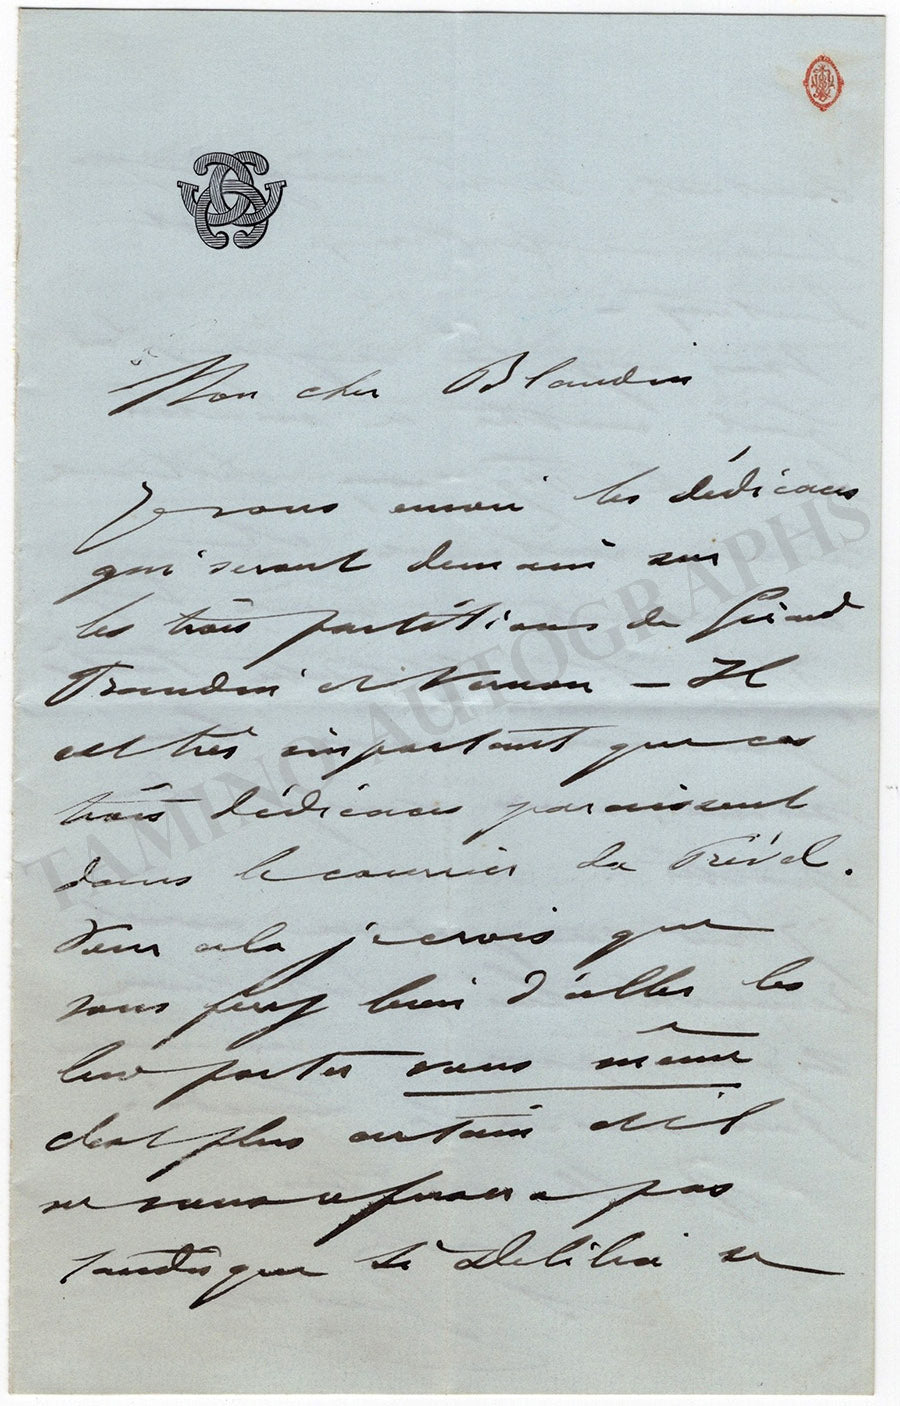 Mon cher Blandin
Je vous envoi les dédicaces
qui seront demain sur
les trois partitions de Girard
Traudin et Vernon – Il
est très important que ces
trois dédicaces paraissent
dans le courrier de Prével.
Pour cela je crois que
vous ferez bien d'aller les
leur porter vous même
c'est plus certain et il
ne vous refusera pas
tandis que si Delilia se
TAMINO AUTOGRAPHS